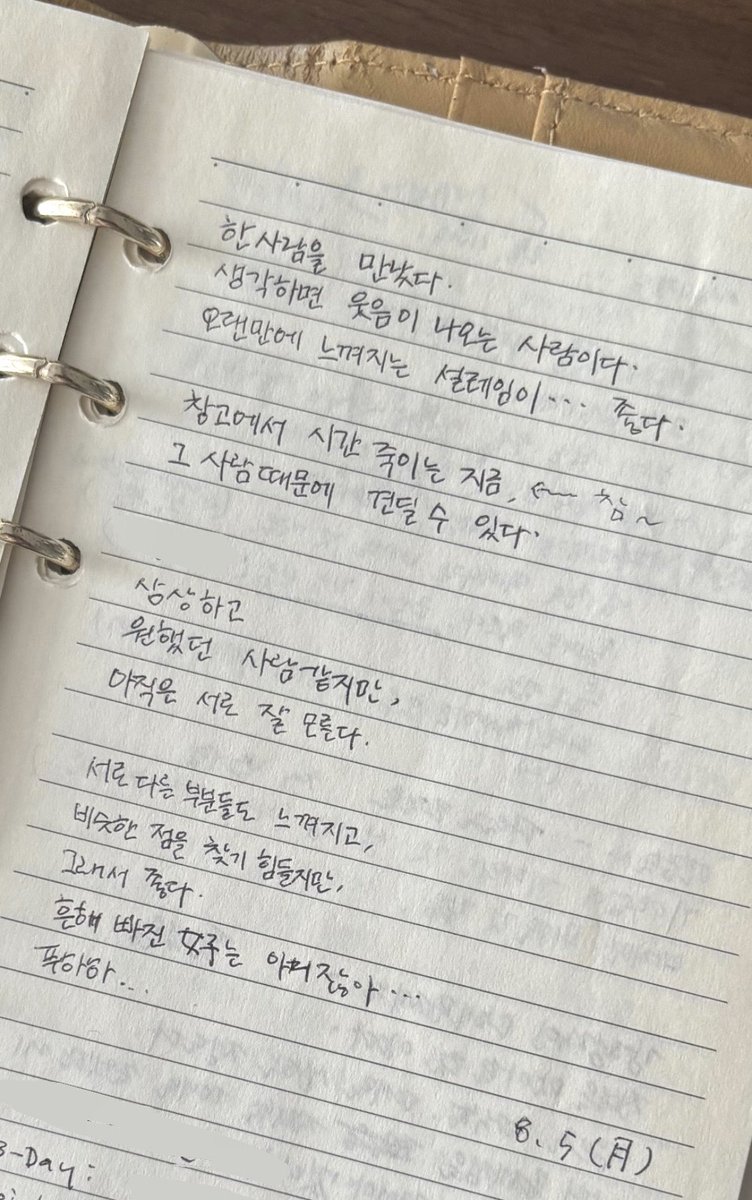 한 사람을 만났다.
생각하면 웃음이 나오는 사람이다.
오랜만에 느껴지는 설레임이... 좋다.
창고에서 시간 죽이는 지금, ← 참~
그 사람때문에 견딜 수 있다.
상상하고
원했던 사람같지만,
아직은 서로 잘 모른다.
서로 다른 부분들도 느껴지고,
비슷한 점을 찾기 힘들지만,
그래서 좋다.
흔해 빠진 女주는 아니잖아...
푸하하...
8. 5 (月)
-Day: